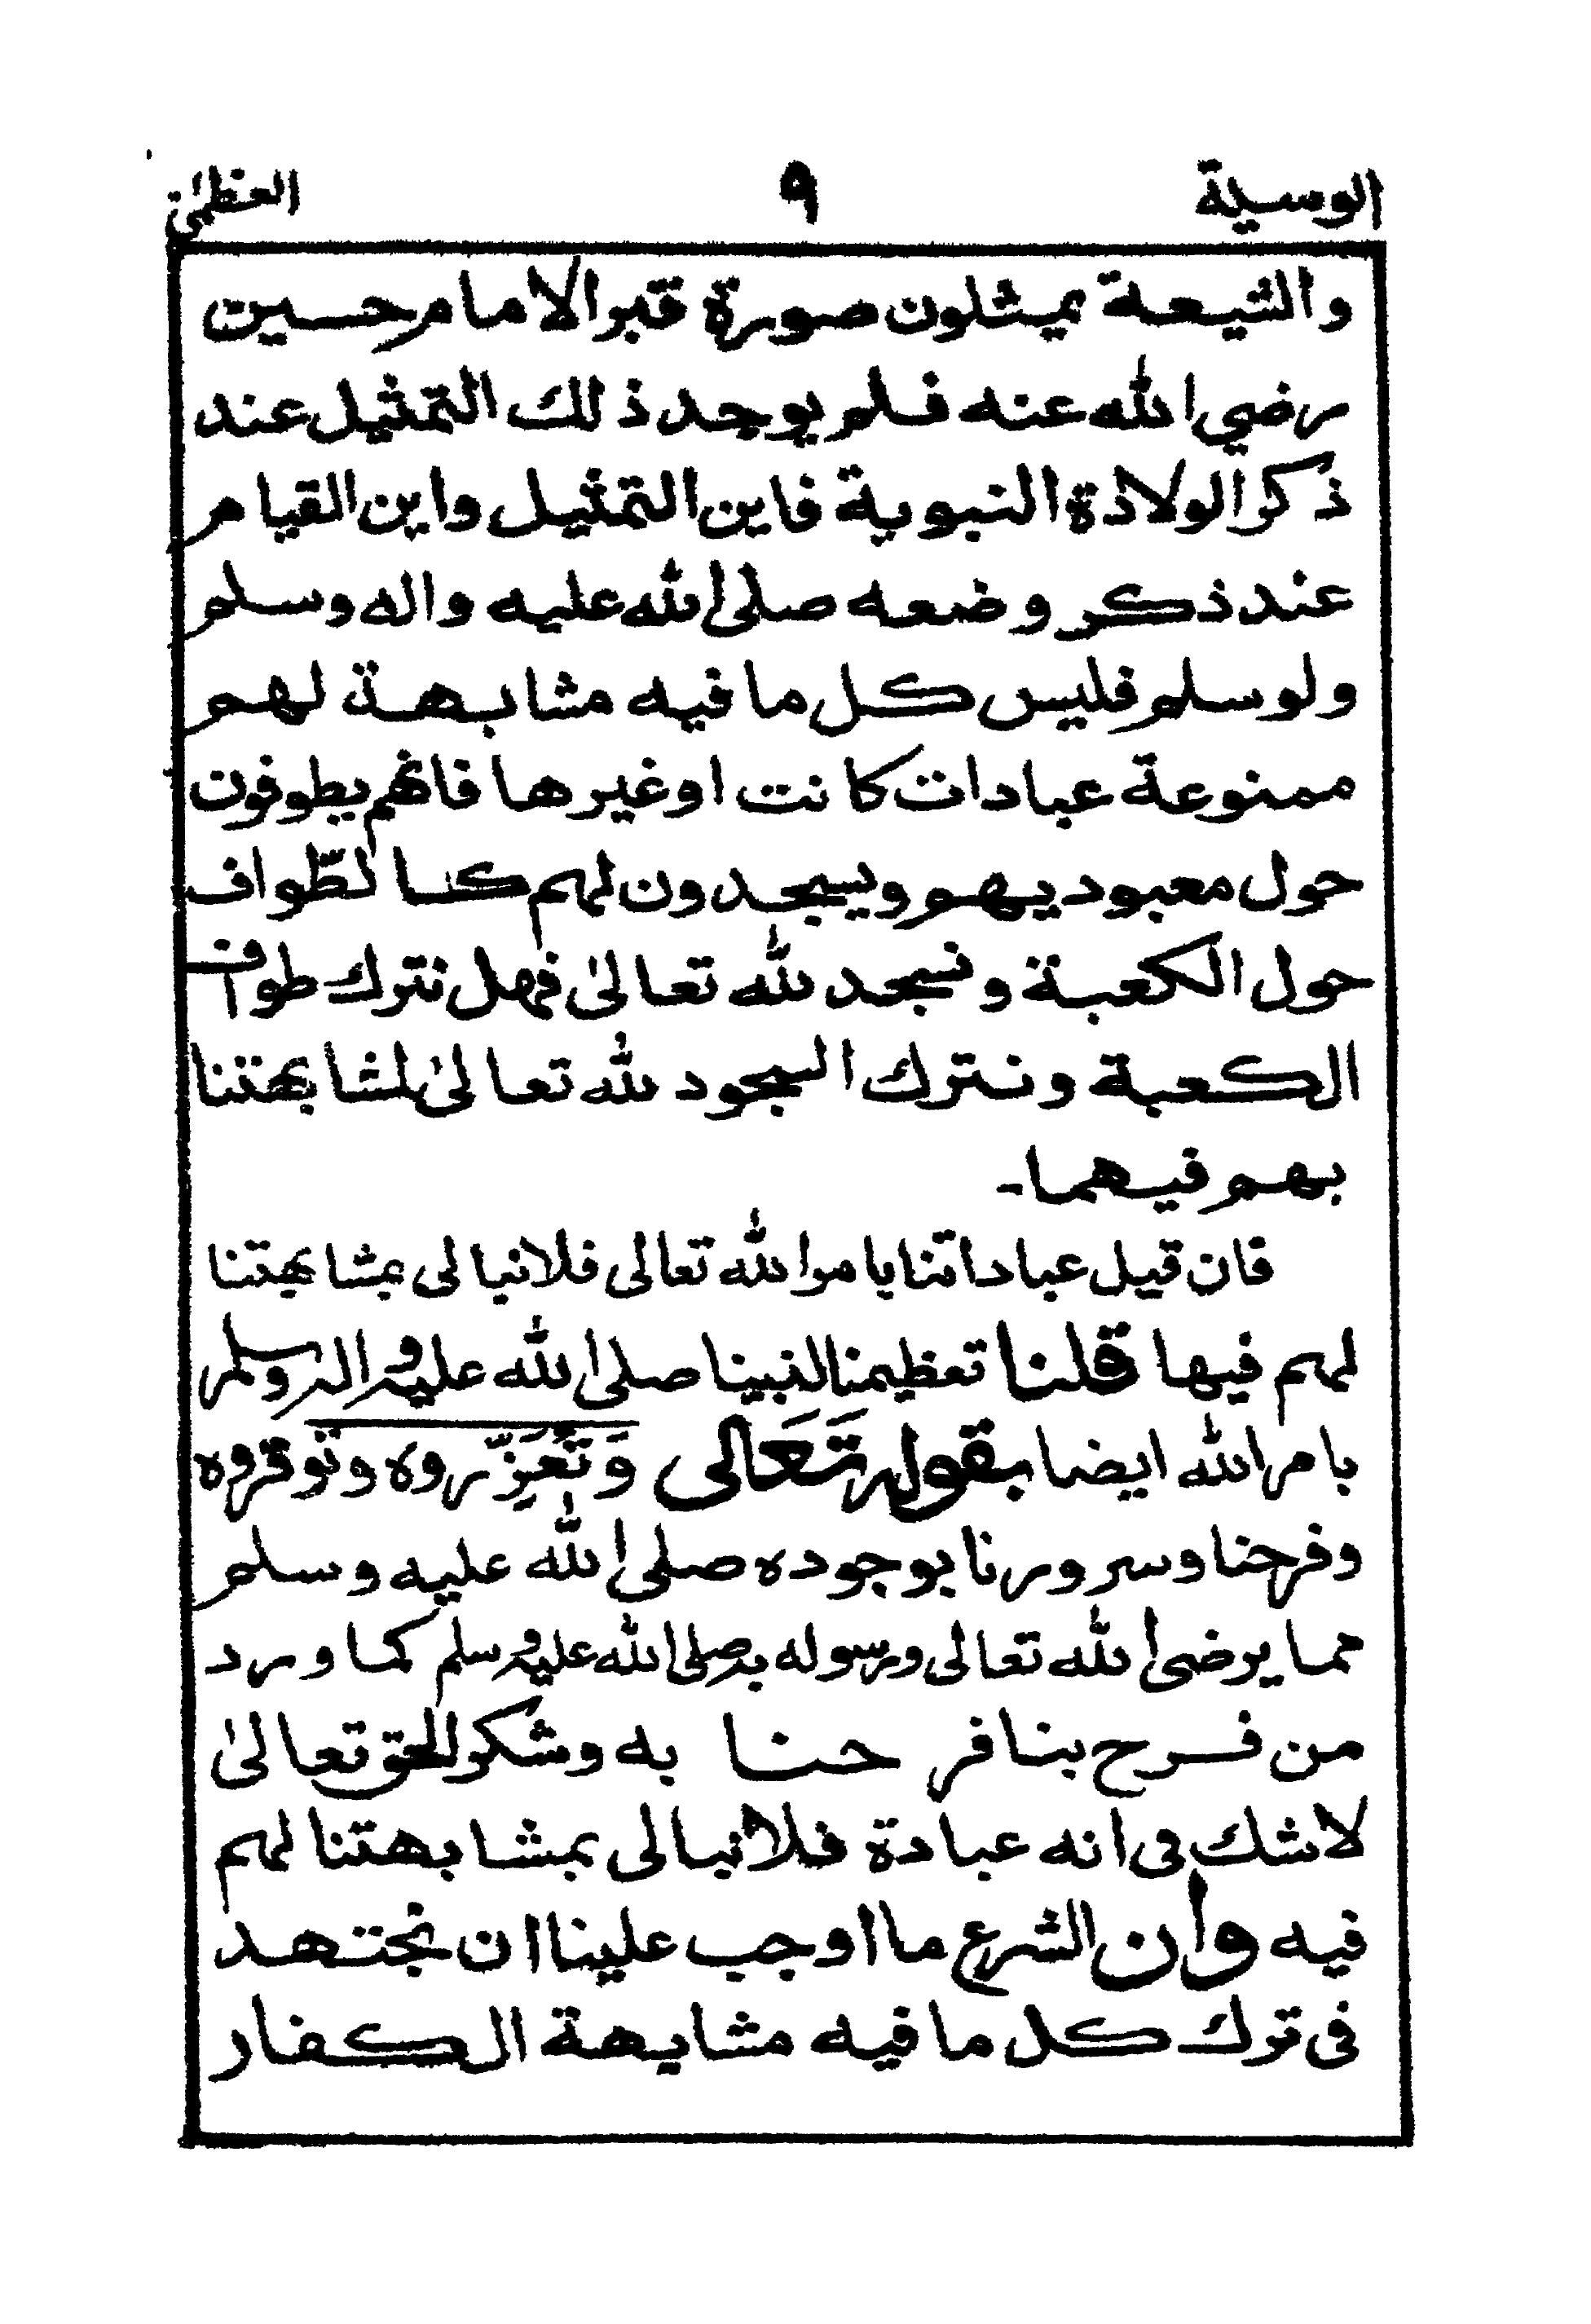 الوسيلة ٩ العظمىٰ
والشيعة يمثلون صورة قبر الامام حسين
رضي الله عنه فلم يوجد ذلك التمثيل عند
ذكر الولادة النبوية فاين التمثيل واين القيام
عند ذكر وضعه صلى الله عليه واله وسلم
ولو سلم فليس كل ما فيه مشابهة لهم
ممنوعة عبادات كانت او غيرها فانهم يطوفون
حول معبوديهم ويسجدون لهم كنا لطّواف
حول الكعبة ونسجد لله تعالىٰ فهل نترك طواف
الكعبة ونترك السجود لله تعالىٰ لمشابهتنا
بهم فيهما-
فان قيل عباداتنا بامر الله تعالى فلا نبالى بمشابهتنا
لهم فيها قلنا تعظيمنا لنبينا صلى الله عليه واله وسلم
بامر الله ايضا بقوله تَعَالى وَتُعَزِّرُوه وتوقروه
وفرحنا وسرورنا بوجوده صلى الله عليه وسلم
مما يرضى الله تعالى ورسوله به صلى الله عليه وسلم كما ورد
من فرح بنا فرحنا به وشكر الحق تعالىٰ
لا شك فى انه عبادة فلا نبالى بمشابهتنا لهم
فيه وان الشرع ما اوجب علينا ان نجتهد
فى ترك كل ما فيه مشابهة الكفار